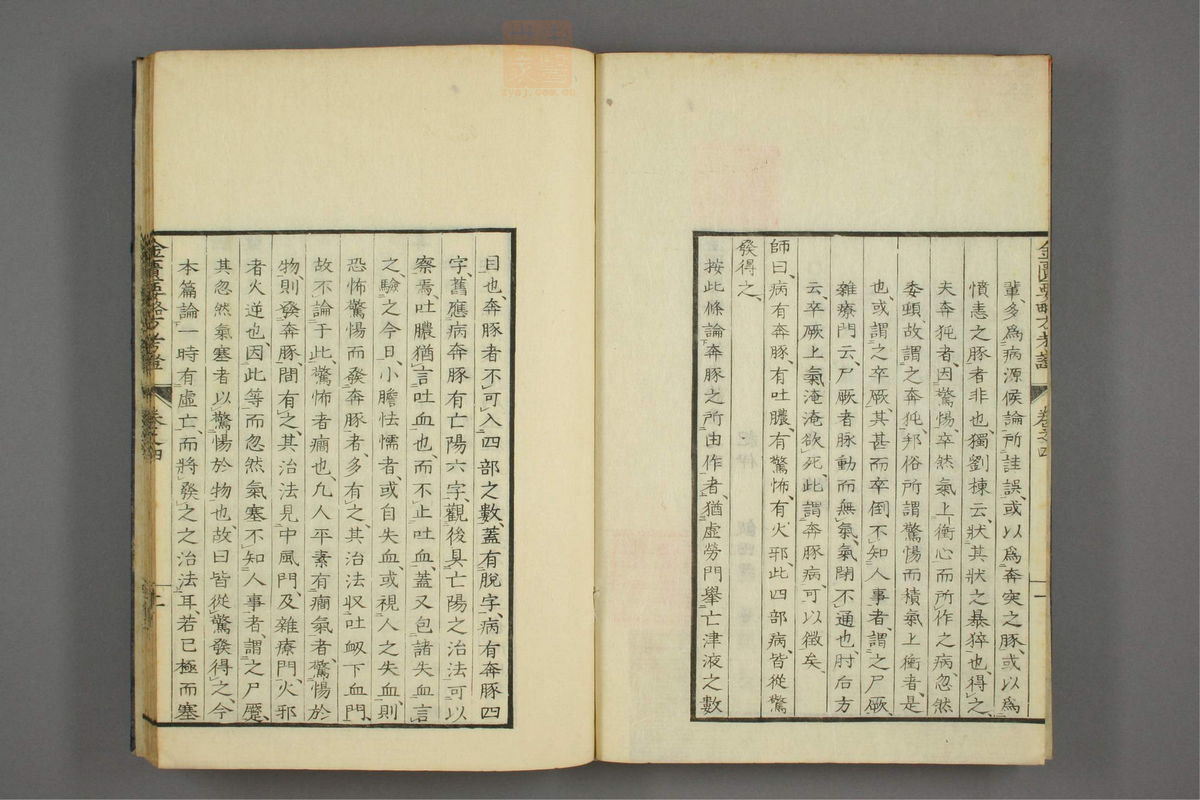 輩、多爲病源候論所註誤、或以爲奔突之豚、或以爲
憤恚之豚者非也、獨劉棟云、狀其狀之暴猝也、得之、
夫奔㹠者、因驚惕、卒然氣上衝心而所作之病、忽然
委頓、故謂之奔㹠、邦俗所謂驚惕而積氣上衝者是
也、或謂之卒厥、其甚而卒倒不知人事者、謂之尸厥、
雜療門云、尸厥者脉動而無氣、氣閉不通也、肘后方
云、卒厥上氣淹淹欲死、此謂奔豚病、可以徵矣、
師曰、病有奔豚、有吐膿、有驚怖、有火邪、此四部病、皆從驚
發得之、
按此條論奔豚之所由作者、猶虛勞門擧亡津液之數
目也、奔豚者不可入四部之數、蓋有脫字、病有奔豚四
字、舊應病奔豚有亡陽六字、觀後具亡陽之治法可以
察焉、吐膿猶言吐血也、而不止吐血、蓋又包諸失血言
之、驗之今日、小膽怯懦者、或自失血、或視人之失血、則
恐怖驚惕而發奔豚者、多有之、其治法収吐衂下血門、
故不論于此、驚怖者癎也、凢人平素有癎氣者、驚惕於
物、則發奔豚、間有之、其治法見中風門、及雜療門、火邪
者火逆也、因此等而忽然氣塞不知人事者、謂之尸蹷、
其忽然氣塞者、以驚惕於物也、故曰皆從驚發得之、今
本篇論一時有虛亡、而將發之之治法耳、若已極而塞
金匱要略方考證
卷之四